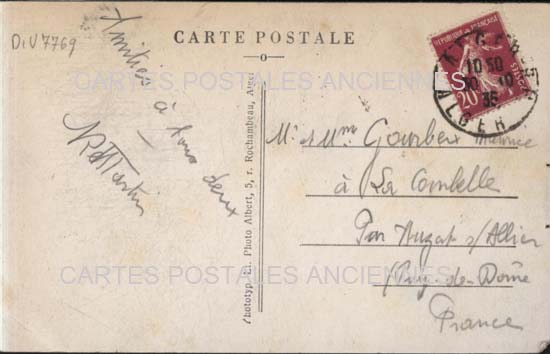 DIV7769
CARTE POSTALE
CARTES POSTALES ANCIENNES
Amitiés
à tous
deux
Martin
Phototyp. Et. Photo Albert, 5, r. Rochambeau, Alger
REPUBLIQUE FRANÇAISE
20
POSTES
ALGER
10 30
10
36
ALGER
Mr & Mme Gourbeix Maurice
à La Combelle
Par Auzat s/Allier
(Puy-de-Dôme
France
CARTES POSTALES ANCIENNES